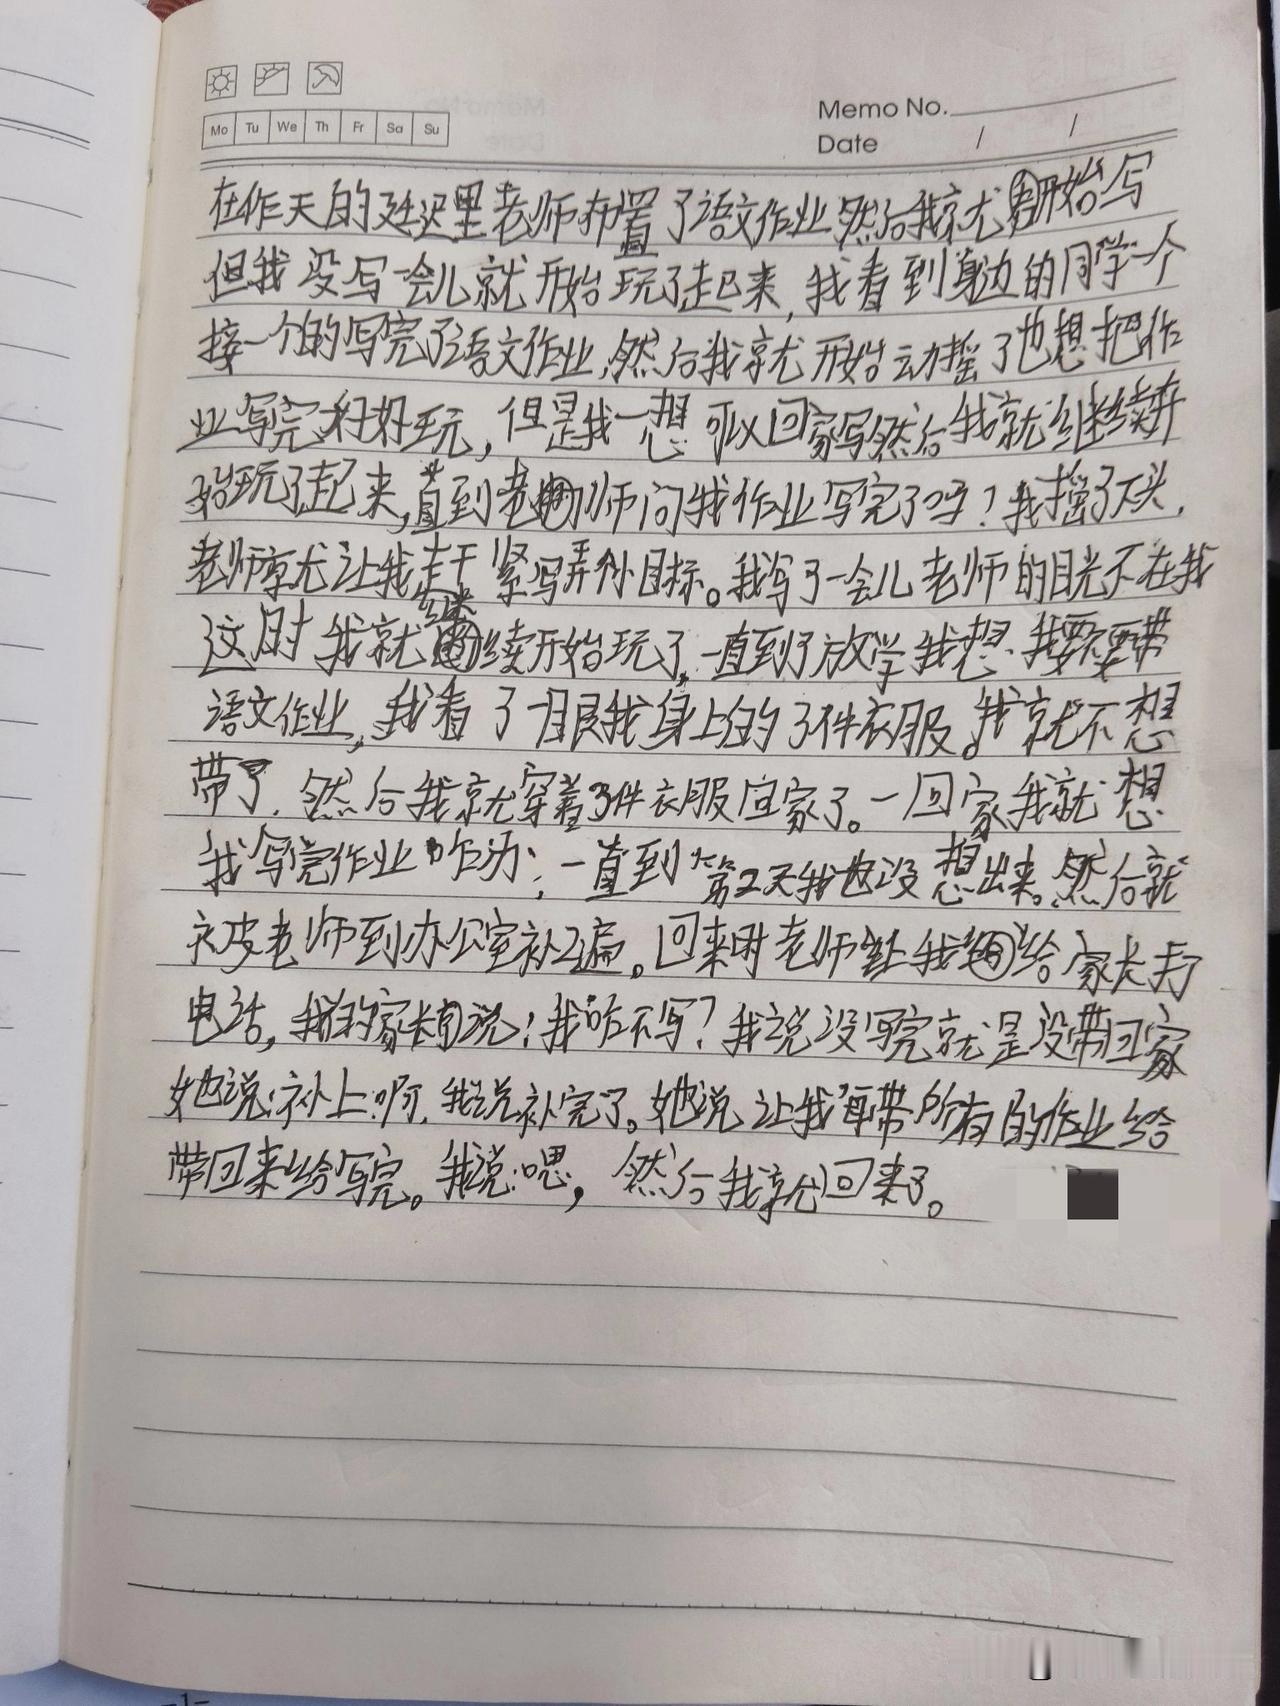 Mo Tu We Th Fr Sa Su
Memo No.
Date / /
在昨天的延迟里老师布置了语文作业然后我就开始写
但我没写一会儿就开始玩了起来,我看到身边的同学一个
接一个的写完了语文作业,然后我就开始动摇了也想把作
业写完好好玩,但是我一想可以回家写然后我就继续开
始玩了起来,直到老师问我作业写完了吗?我摇了头,
老师就让我赶紧写弄个小目标。我写了一会儿老师的目光不在我
这时我就继续开始玩了,一直到了放学我想:我要不要带
语文作业,我看了一眼我身上的3件衣服。我就不想
带了.然后我就穿着3件衣服回家了。一回家我就想
我写完作业咋为;一直到第2天我也没想出来。然后就
被老师到办公室补2遍。回来时老师让我给家长打
电话,我的家长说:我咋不写?我说没写完就是没带回家
她说:补上啊.我说补完了。她说让我再带所有的作业给
带回来给写完。我说:嗯,然后我就回来了。
-1-